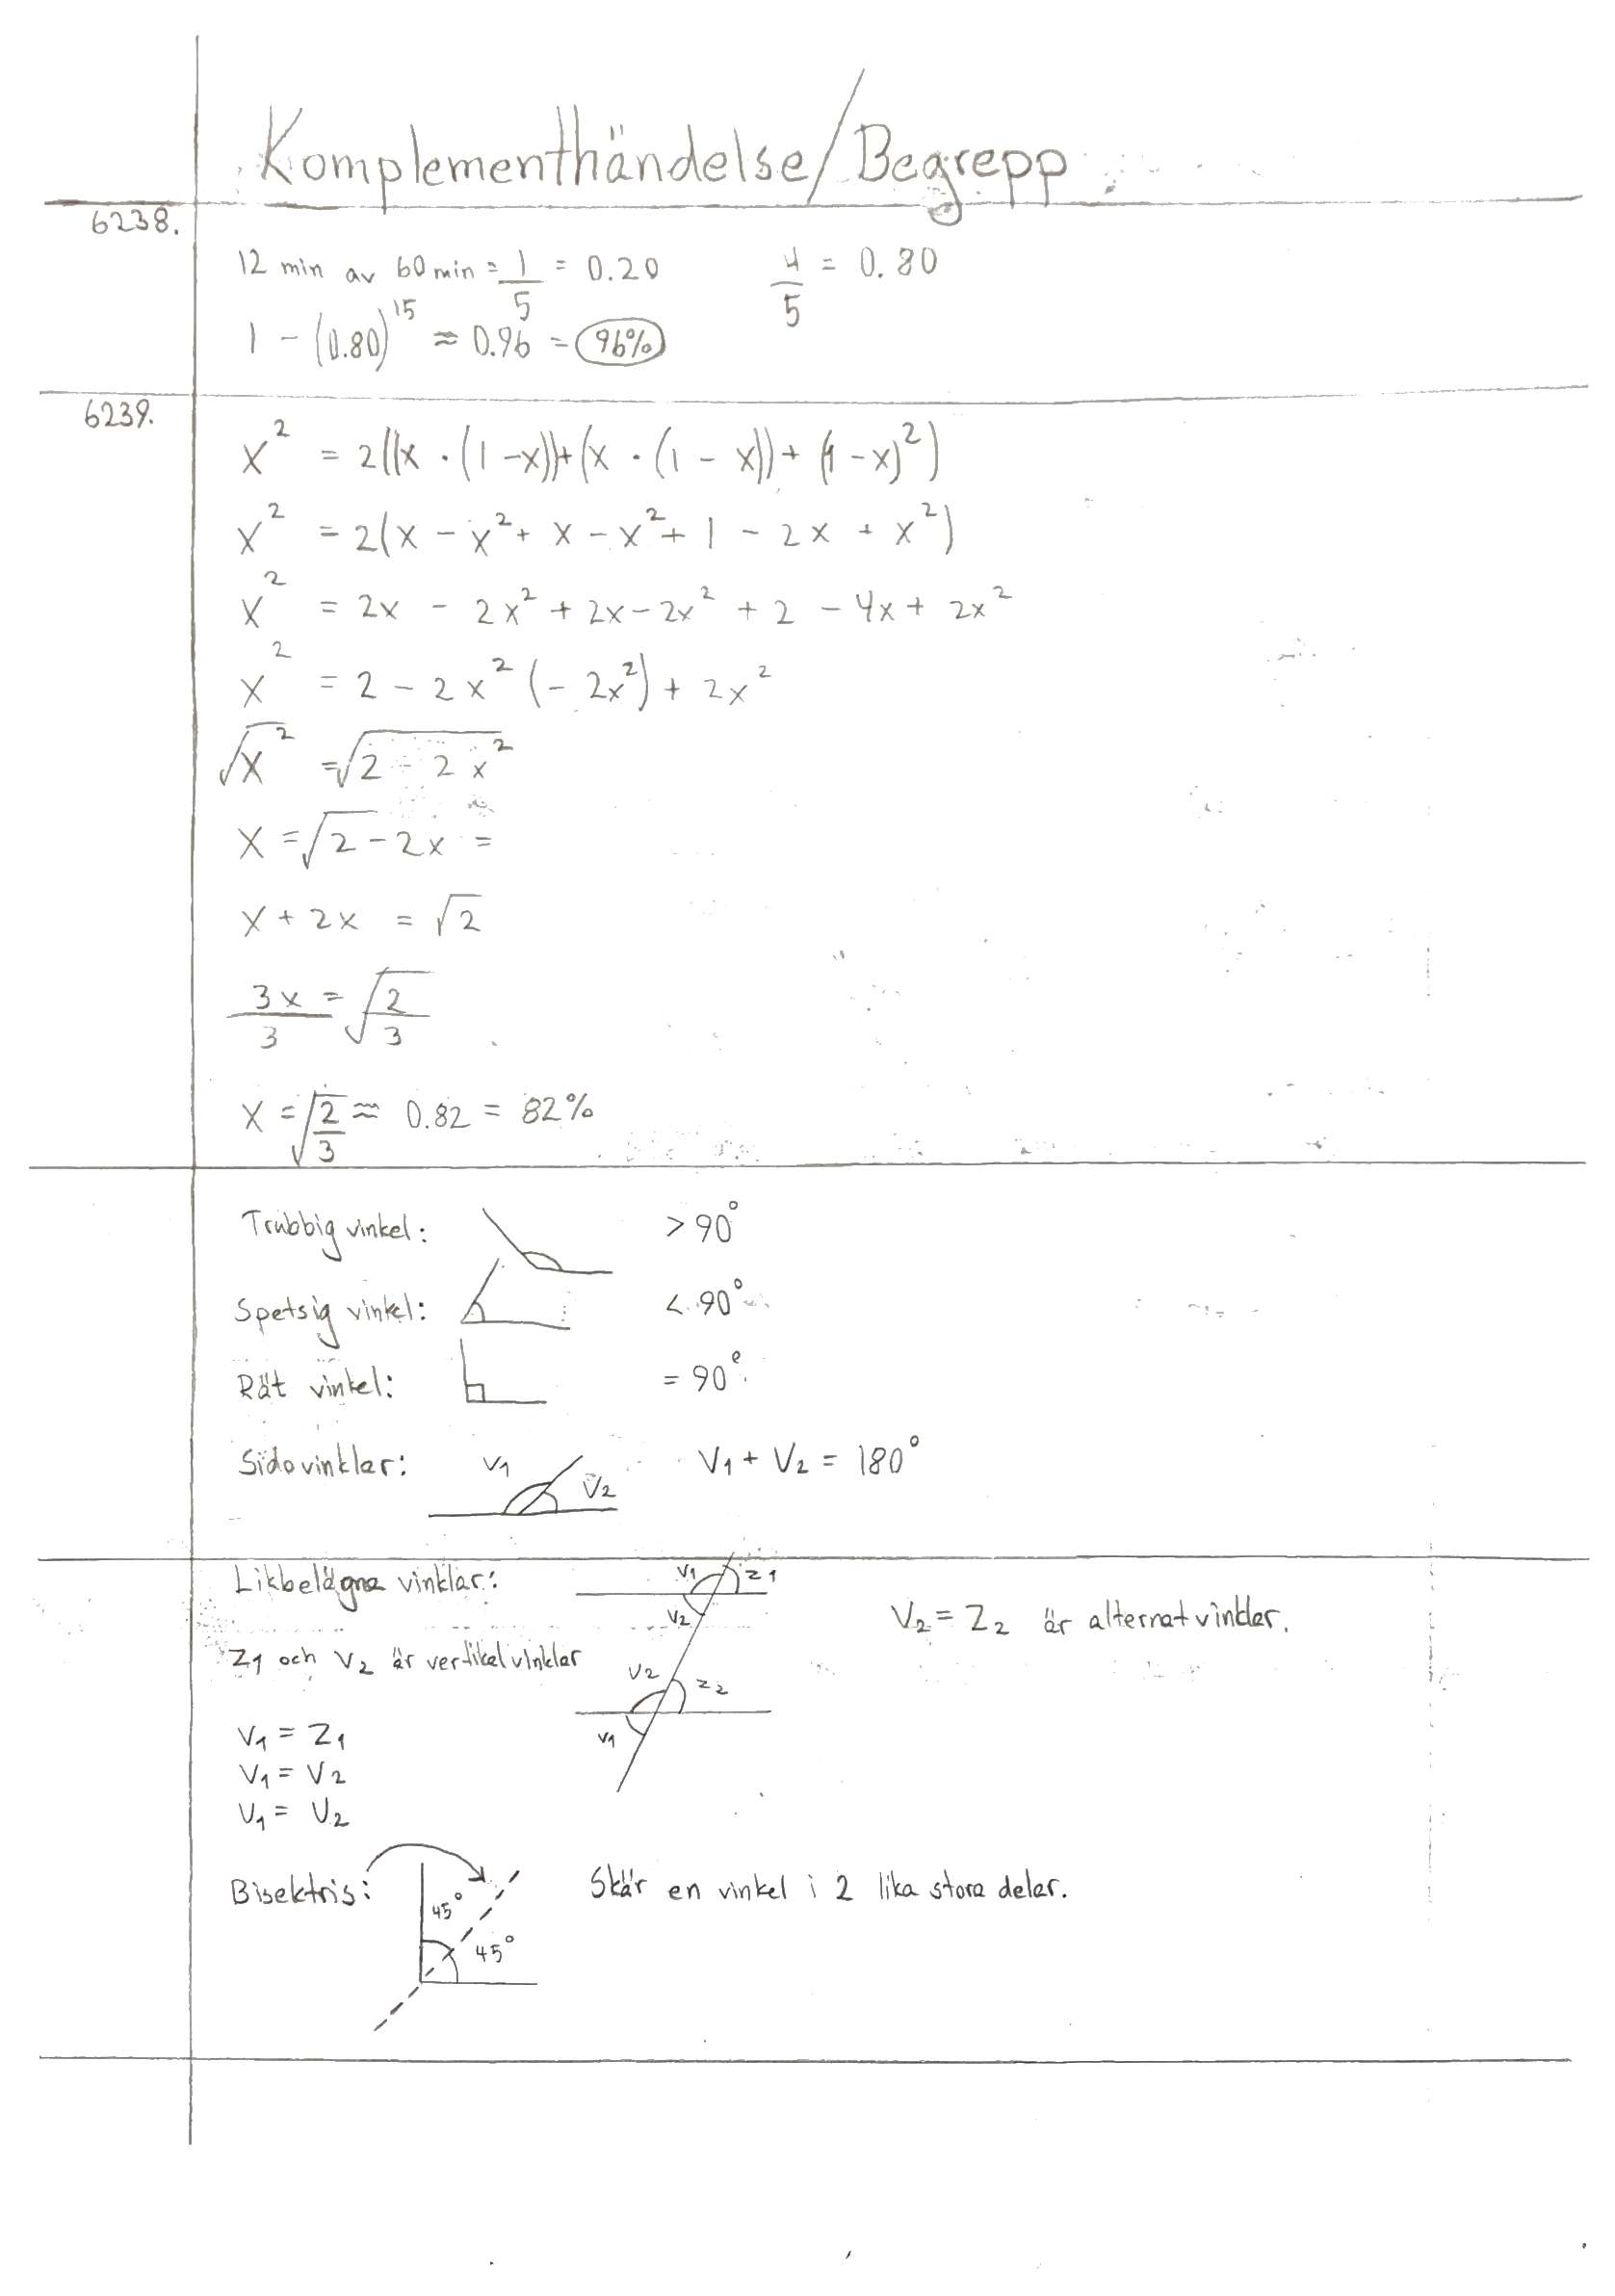 Komplementhändelse/Begrepp
6238.
12 min av 60 min = 1/5 = 0.20    4/5 = 0.80
1 - (0.80)^15 ≈ 0.96 = 96%
6239.
x² = 2((x · (1-x))+(x · (1 - x))+ (1-x)²)
x² = 2(x - x² + x - x² + 1 - 2x + x²)
x² = 2x - 2x² + 2x - 2x² + 2 - 4x + 2x²
x² = 2 - 2x² (- 2x²) + 2x²
√x² = √2 - 2x²
x = √2 - 2x =
x + 2x = √2
3x/3 = √2/3
x = √2/3 ≈ 0.82 = 82%
Trubbig vinkel: > 90°
Spetsig vinkel: < 90°
Rät vinkel: = 90°
Sidovinklar: V1 V2 V1 + V2 = 180°
Likbelägna vinklar: V1 Z1
V2
V2 = Z2 är alternatvinklar.
Z1 och V2 är vertikalvinklar
V2 Z2
V1
V1 = Z1
V1 = V2
V1 = V2
Bisektris: 45° 45° Skär en vinkel i 2 lika stora delar.